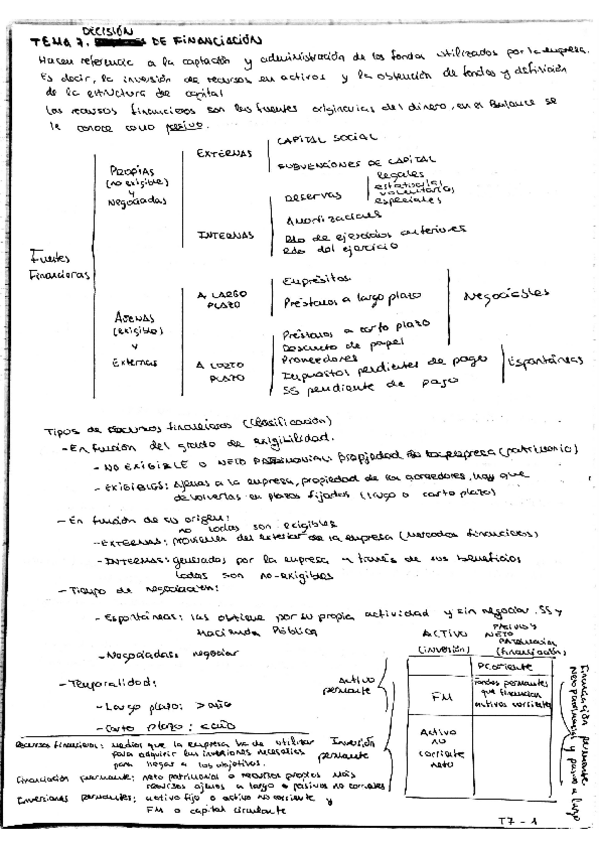 DECISIÓN
TEMA 7. DE FINANCIACIÓN
Hacen referencia a la captación y administración de los fondos utilizados por la empresa.
Es decir, la inversión de recursos en activos y la obtención de fondos y definición
de la estructura de capital
Los recursos financieros son las fuentes originarias del dinero, en el Balance se
le conoce como pasivo.
Fuentes
Financieras
PROPIAS
(no exigible)
y
Negociadas
EXTERNAS
CAPITAL SOCIAL
SUBVENCIONES DE CAPITAL
INTERNAS
RESERVAS
legales
estatutarias
voluntarias
especiales
Amortizaciones
Rdo de ejercicios anteriores
Rdo del ejercicio
AJENAS
(exigible)
y
Externas
A LARGO
PLAZO
Empréstitos
Préstamos a largo plazo
Negociables
A CORTO
PLAZO
Préstamos a corto plazo
Descuento de papel
Proveedores
Impuestos pendientes de pago
SS pendiente de pago
Espontáneas
Tipos de recursos financieros (Clasificación)
- En función del grado de exigibilidad.
- NO EXIGIBLE O NETO PATRIMONIAL: propiedad de la empresa (patrimonio)
- EXIGIBLES: Ajenas a la empresa, propiedad de los acreedores, hay que
devolverlas en plazos fijados (largo o corto plazo)
- En función de su origen:
no todas son exigibles
- EXTERNAS: provienen del exterior de la empresa (mercados financieros)
- INTERNAS: generados por la empresa a través de sus beneficios
todas son no-exigibles
- Tiempo de negociación:
- Espontáneas: las obtiene por su propia actividad y sin negociar. SS y
Hacienda Pública
- Negociadas: negociar
- Temporalidad:
- Largo plazo: > año
- Corto plazo: < año
ACTIVO
(inversión)
PASIVO Y
NETO
PATRIMONIAL
(financiación)
Activo
permanente
P corriente
FM
Fondos permanentes
que financian
activos corriente
Inversión
permanente
Activo
no
corriente
neto
Financiación permanente
Neto patrimonial y pasivo a largo
Recursos financieros: medios que la empresa ha de utilizar
para adquirir las inversiones necesarias
para llegar a los objetivos.
Financiación permanente: neto patrimonial o recursos propios más
recursos ajenos a largo o pasivos no corrientes
Inversiones permanentes: activo fijo o activo no corriente y
FM o capital circulante
T7 - 1